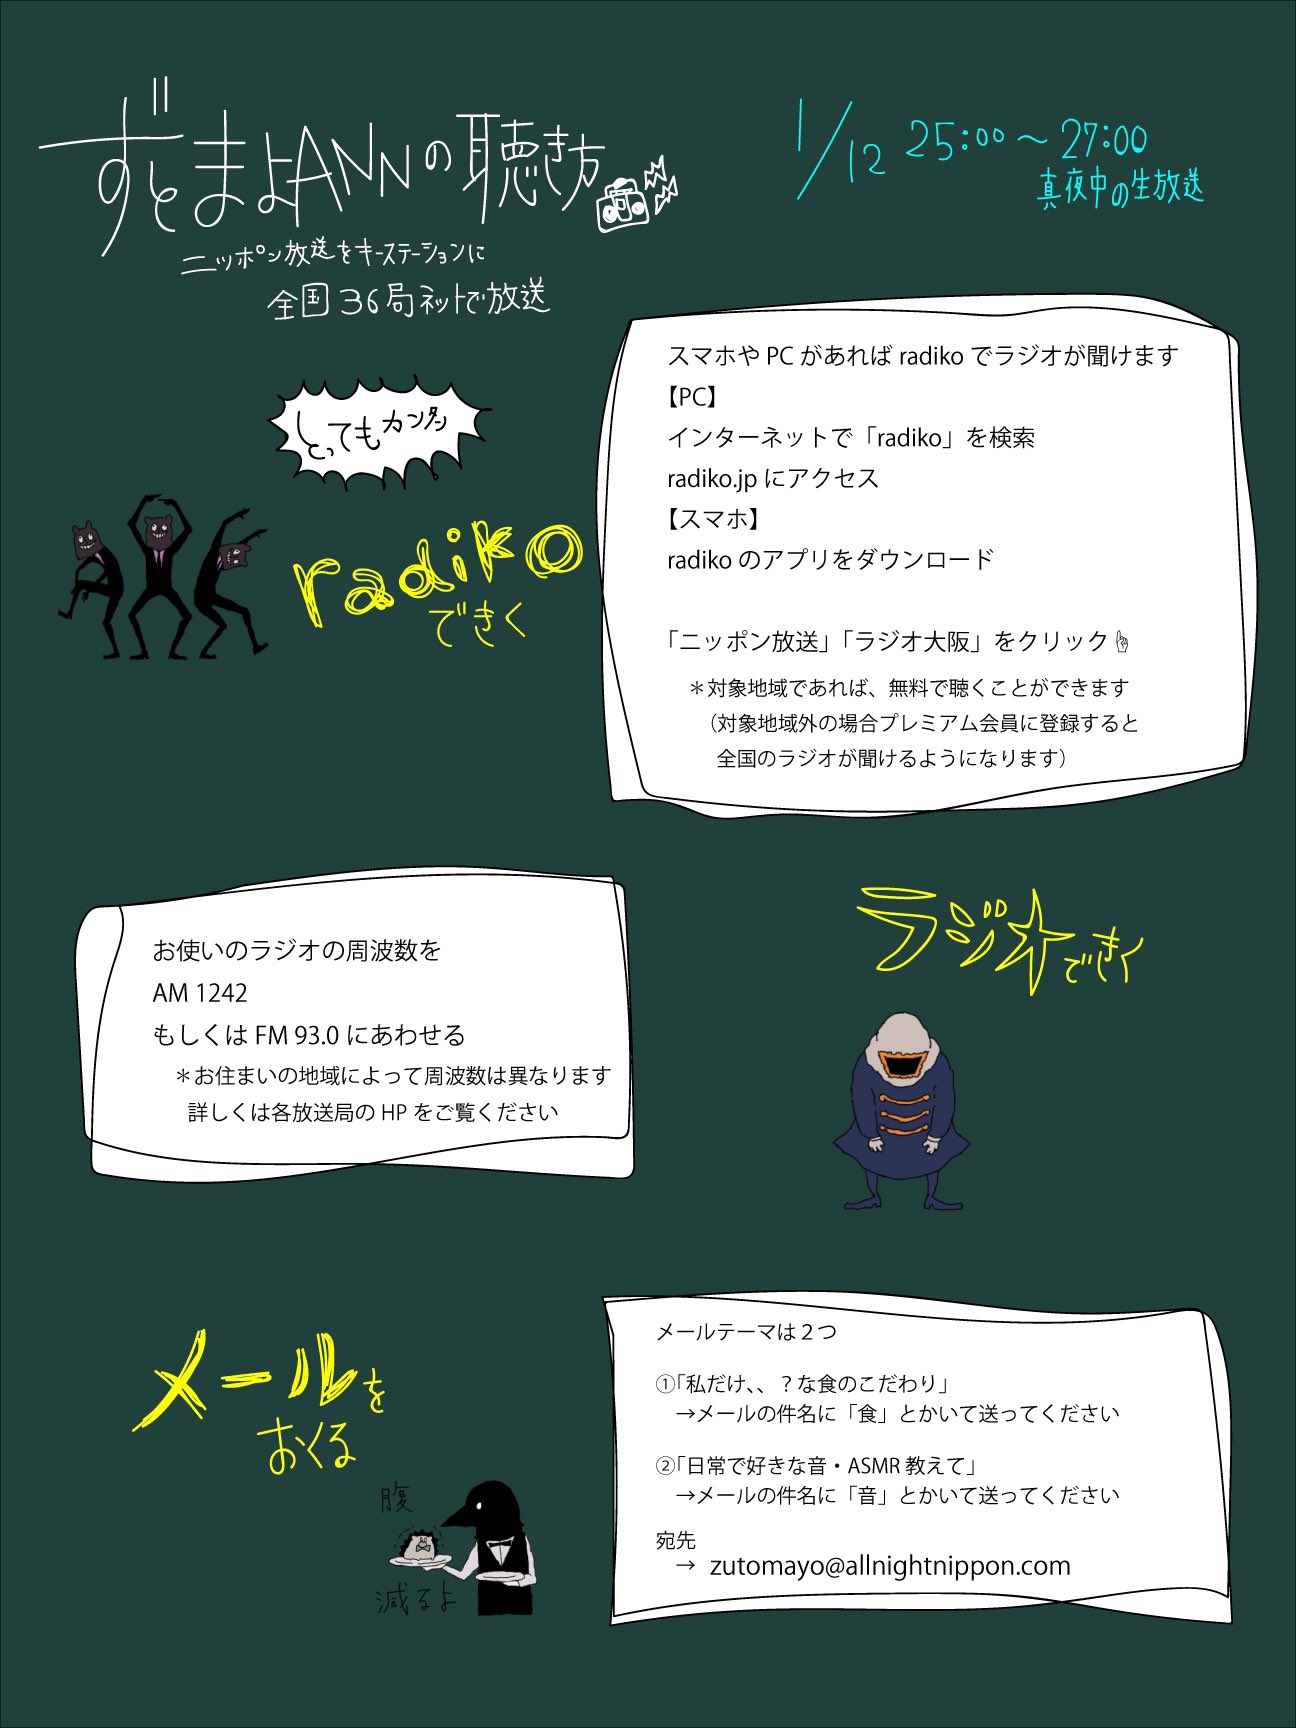 ずとまよANNの聴き方
ニッポン放送をキーステーションに
全国36局ネットで放送
1/12 25:00〜27:00
真夜中の生放送
とってもカンタン
radiko
できく
スマホや PC があれば radiko でラジオが聞けます
【PC】
インターネットで「radiko」を検索
radiko.jp にアクセス
【スマホ】
radiko のアプリをダウンロード
「ニッポン放送」「ラジオ大阪」をクリック☝
＊対象地域であれば、無料で聴くことができます
（対象地域外の場合プレミアム会員に登録すると
全国のラジオが聞けるようになります）
ラジオできく
お使いのラジオの周波数を
AM 1242
もしくは FM 93.0 にあわせる
＊お住まいの地域によって周波数は異なります
詳しくは各放送局の HP をご覧ください
メールを
おくる
腹
減るよ
メールテーマは２つ
①「私だけ、、？な食のこだわり」
→メールの件名に「食」とかいて送ってください
②「日常で好きな音・ASMR 教えて」
→メールの件名に「音」とかいて送ってください
宛先
→ zutomayo@allnightnippon.com